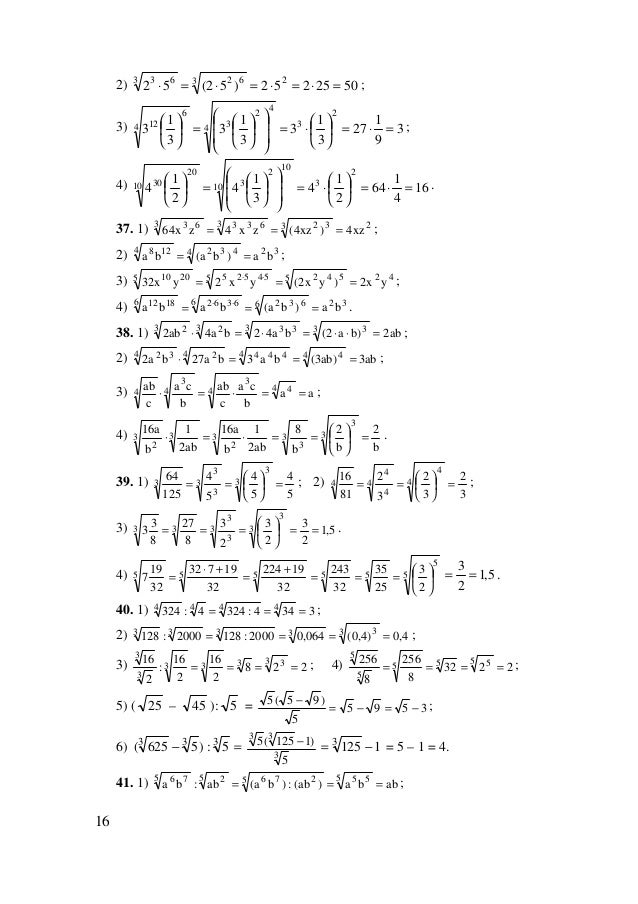 2) ∛(2³·5⁶) = ∛((2·5²)⁶) = 2·5² = 2·25 = 50 ;
3) ⁴√(3¹²(1/3)⁶) = ⁴√((3³(1/3)²)⁴) = 3³·(1/3)² = 27·1/9 = 3 ;
4) ¹⁰√(4³⁰(1/2)²⁰) = ¹⁰√((4³(1/3)²)¹⁰) = 4³·(1/2)² = 64·1/4 = 16 .
37. 1) ∛(64x³z⁶) = ∛(4³x³z⁶) = ∛((4xz²)³) = 4xz² ;
2) ⁴√(a⁸b¹²) = ⁴√((a²b³)⁴) = a²b³ ;
3) ⁵√(32x¹⁰y²⁰) = ⁵√(2⁵x²·⁵y⁴·⁵) = ⁵√((2x²y⁴)⁵) = 2x²y⁴ ;
4) ⁶√(a¹²b¹⁸) = ⁶√(a²·⁶b³·⁶) = ⁶√((a²b³)⁶) = a²b³ .
38. 1) ∛(2ab²)·∛(4a²b) = ∛(2·4a³b³) = ∛((2·a·b)³) = 2ab ;
2) ⁴√(2a²b³)·⁴√(27a²b) = ⁴√(3⁴a⁴b⁴) = ⁴√((3ab)⁴) = 3ab ;
3) ⁴√(ab/c)·⁴√(a³c/b) = ⁴√(ab/c·a³c/b) = ⁴√(a⁴) = a ;
4) ∛(16a/b²)·∛(1/2ab) = ∛(16a/b²·1/2ab) = ∛(8/b³) = ∛((2/b)³) = 2/b .
39. 1) ∛(64/125) = ∛(4³/5³) = ∛((4/5)³) = 4/5 ; 2) ⁴√(16/81) = ⁴√(2⁴/3⁴) = ⁴√((2/3)⁴) = 2/3 ;
3) ∛(3 3/8) = ∛(27/8) = ∛(3³/2³) = ∛((3/2)³) = 3/2 = 1,5 .
4) ⁵√(7 19/32) = ⁵√((32·7+19)/32) = ⁵√((224+19)/32) = ⁵√(243/32) = ⁵√(35/25) = ⁵√((3/2)⁵) = 3/2 = 1,5 .
40. 1) ⁴√324 : ⁴√4 = ⁴√(324 : 4) = ⁴√34 = 3 ;
2) ∛128 : ∛2000 = ∛(128 : 2000) = ∛0,064 = ∛((0,4)³) = 0,4 ;
3) ∛16/∛2 : ∛(16/2) = ∛(16/2) = ∛8 = ∛(2³) = 2 ; 4) ⁵√256/⁵√8 = ⁵√(256/8) = ⁵√32 = ⁵√(2⁵) = 2 ;
5) (√25 – √45) : √5 = √5(√5 − √9)/√5 = √5 − √9 = √5 − 3 ;
6) (∛625 − ∛5) : ∛5 = ∛5(∛125 − 1)/∛5 = ∛125 − 1 = 5 – 1 = 4.
41. 1) ⁵√(a⁶b⁷) : ⁵√(ab²) = ⁵√((a⁶b⁷) : (ab²)) = ⁵√(a⁵b⁵) = ab ;
16